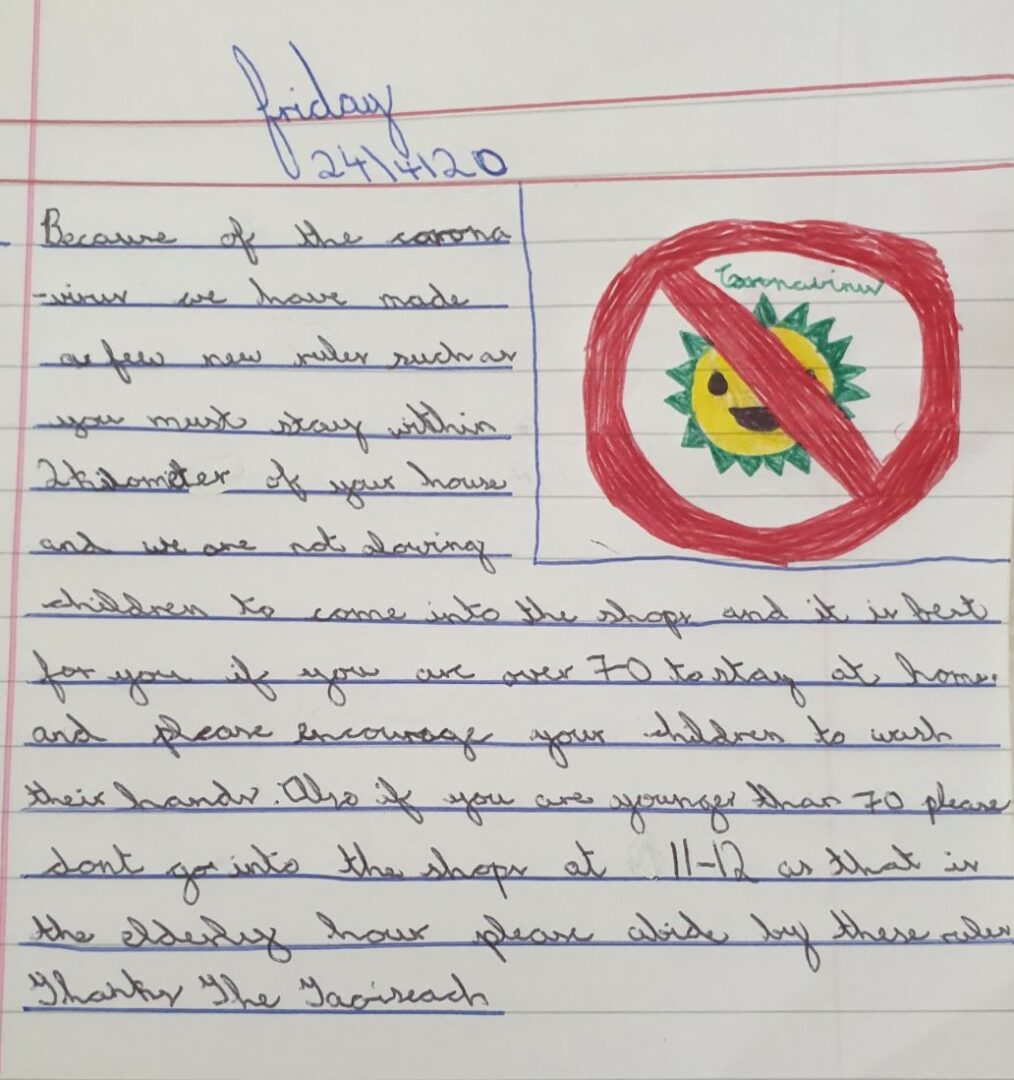 friday
24\4\20
Because of the corona
-virus we have made
a few new rules such as
you must stay within
2kilometer of your house
and we are not alowing
children to come into the shops and it is best
for you if you are over 70 to stay at home.
and please encourage your children to wash
their hands. Also if you are younger than 70 please
dont go into the shops at 11-12 as that is
the elderley hour please abide by these rules
Thanks The Taoiseach
Coronavirus